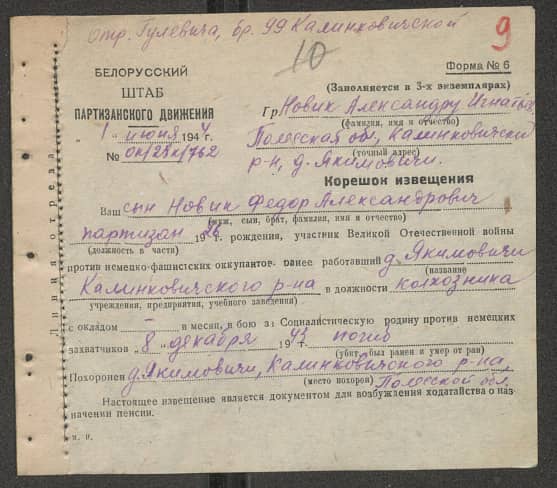 Отр. Гулевича, бр. 99 Калинковичской
10
9
БЕЛОРУССКИЙ
ШТАБ
ПАРТИЗАНСКОГО ДВИЖЕНИЯ
"1" июня 1944 г.
№ ок/2дк/762
Форма № 6
(Заполняется в 3-х экземплярах)
Гр. Новик Александру Игнатье
(фамилия, имя и отчество)
Полесская обл, Калинковичский
(точный адрес)
р-н, д. Якимовичи.
Корешок извещения
Ваш сын Новик Федор Александрович
(муж, сын, брат, фамилия, имя и отчество)
партизан 1926 г. рождения, участник Великой Отечественной войны
(должность в части)
против немецко-фашистских оккупантов ранее работавший д. Якимовичи
(название)
Калинковичского р-на в должности колхозника
учреждения, предприятия, учебного заведения)
с окладом – в месяц, в бою за Социалистическую родину против немецких
захватчиков "8" декабря 194 г. погиб
(убит, был ранен и умер от ран)
Похоронен д. Якимовичи, Калинковичского р-на,
(место похорон) Полесской обл.
Настоящее извещение является документом для возбуждения ходатайства о наз-
начении пенсии.
м. п.
Линия отреза